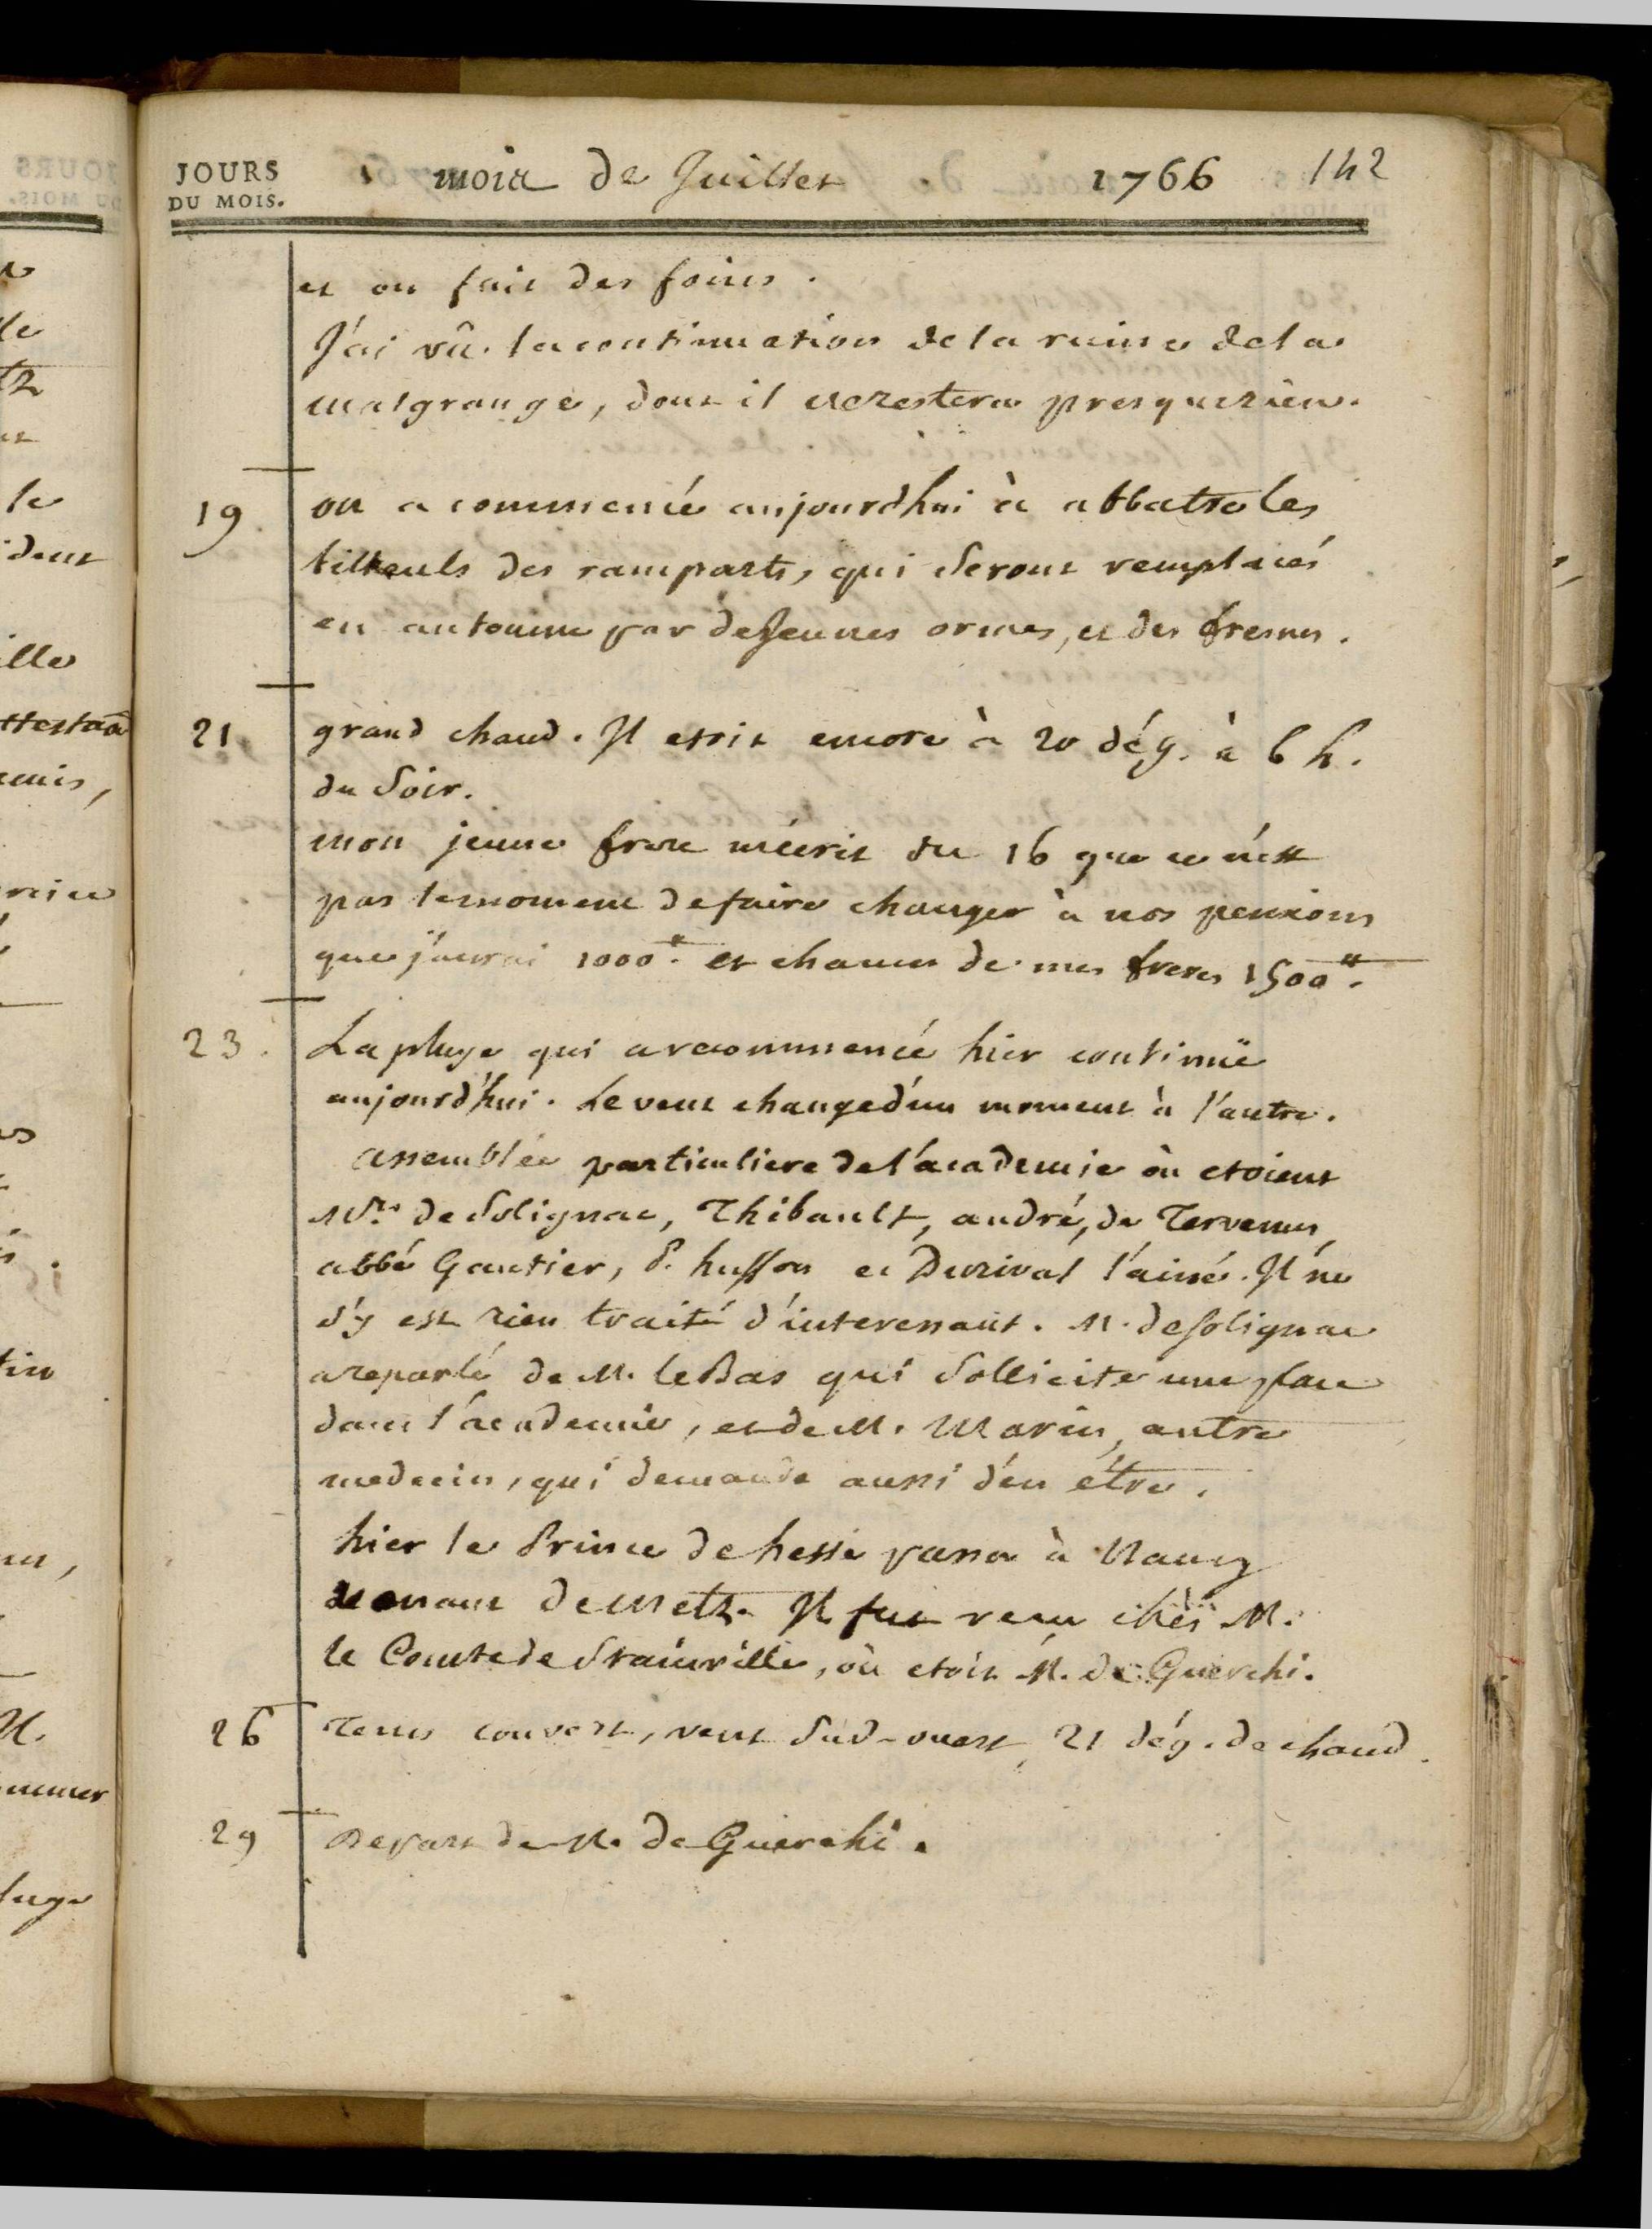 JOURS
DU MOIS.
mois de Juillet 1766 142
et on fait des foins.
J'ai vû la continuation de la ruine de la
malgrange, dont il ne restera presque rien.
19 on a commencé aujourd'hui à abbatre les
tilleuls des ramparts, qui seront remplacés
en automne par de jeunes ormes, et des fresnes.
21 grand chaud. Il etoit encore à 20 dég. à 6 h.
du soir.
mon jeune frere m'écrit du 16 que ce n'est
pas le moment de faire changer à nos pensions
que j'aurai 1000 ₶. et chacun de mes freres 1500 ₶.
23. La pluye qui a recommencé hier continuë
aujourd'hui. Le vent change d'un moment à l'autre.
assemblée particuliere de l'academie où etoient
Mrs. de Solignac, Thibault, andré, de Tervenus,
abbé Gautier, P. husson et Durival l'ainé. Il ne
s'y est rien traité d'interessant. M. de Solignac
a reparlé de M. le Bas qui sollicite une place
dans l'academie, et de M. Marin, autre
medecin, qui demande aussi d'en être.
hier le Prince de hesse passa à Nancy
venant de Metz. Il fut reçu chés M.
le Comte de Stainville, où etoit M. de Guerchi.
26 Tems couvert, vent sud-ouest, 21 dég. de chaud.
29 Depart de M. de Guerchi.